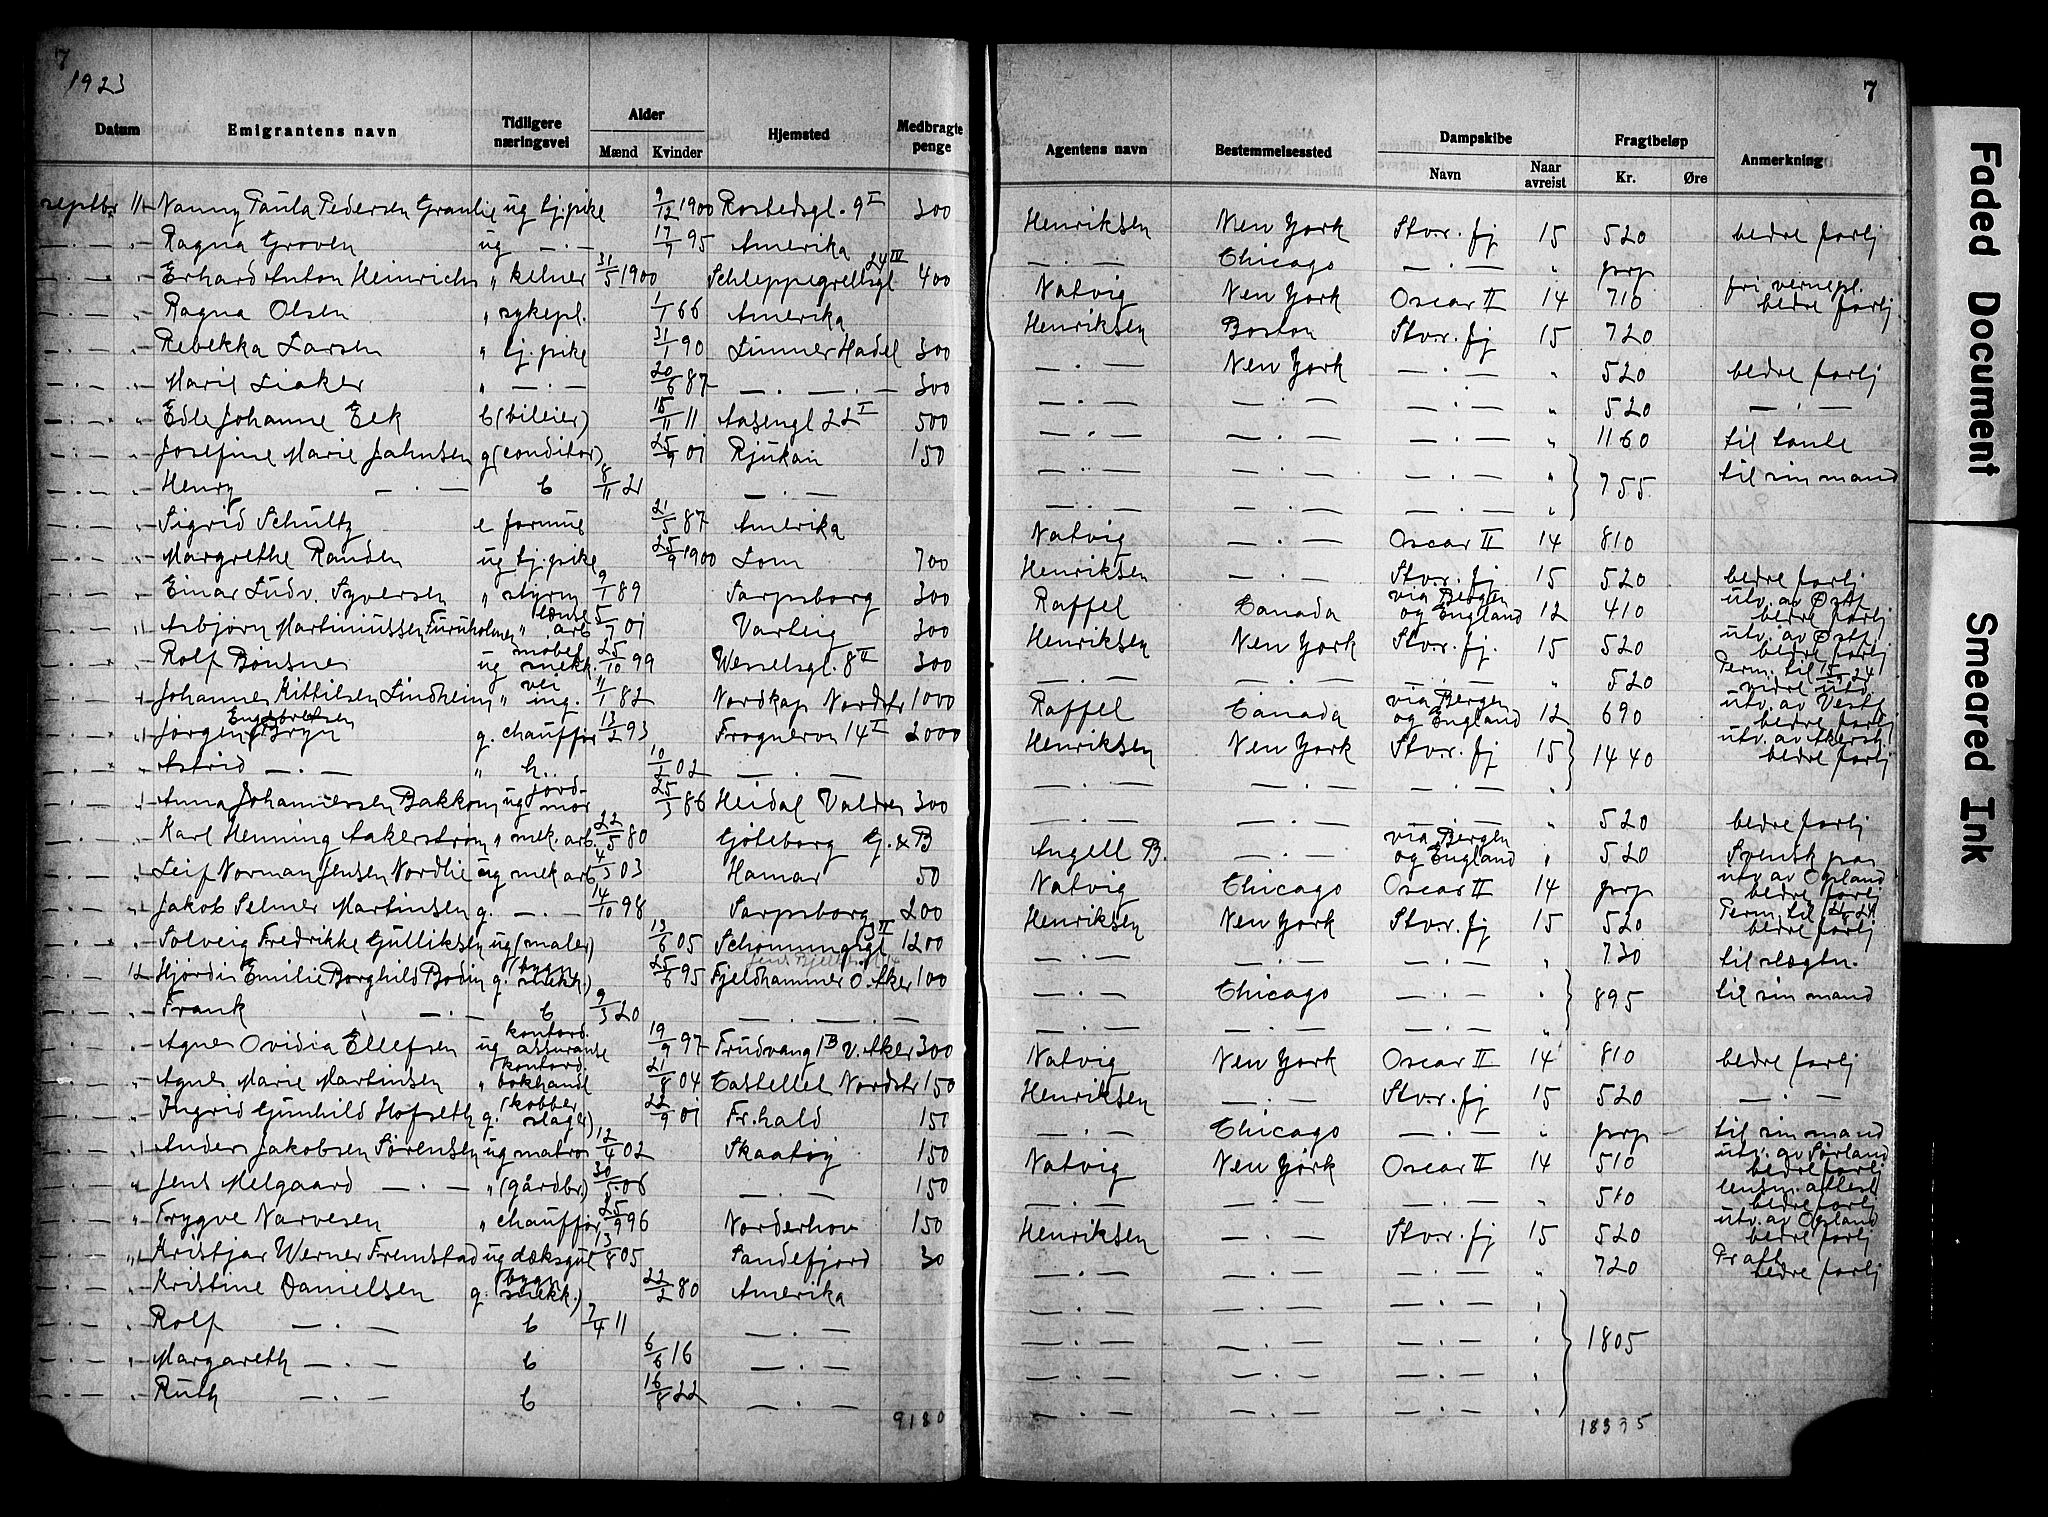 7
1923
Datum Emigrantens navn Tidligere næringsvei Alder Mænd Kvinder Hjemsted Medbragte penge
septbr 11 Nanny Paula Pedersen Granlie ug tj.pike 9/12 1900 Rostedsgt. 9 I 300
— · — " Ragna Groven ug — · — 17/9 95 Amerika
— · — " Erhard Anton Heinrich " kelner 31/5 1900 Schleppegrellsgt 24 IV 400
— · — " Ragna Olsen " sykepl. 1/1 66 Amerika
— · — " Rebekka Larsen " tj.pike 31/1 90 Linner Hadel 300
— · — " Marie Liaker " — · — 20/6 87 — · — · — 300
— · — " Edle Johanne Eek b (bileier) 15/11 11 Aasengt 22 I 500
— · — " Josefine Marie Jahnsen g (conditor) 25/9 01 Rjukan 150
— · — " Henry — · — b 8/11 21 — · —
— · — " Sigrid Schultz e formue 21/5 87 Amerika
— · — " Margrethe Randen ug tj.pike 25/9 1900 Lom 700
— · — " Einar Ludv. Syversen " styrm 9/1 89 Sarpsborg 300
— · — " Asbjørn Martinussen Furuholmen " lænse arb 5/7 01 Varteig 300
— · — " Rolf Bønsnes ug møbel snekk. 25/10 99 Wesselsgt. 8 II 300
— · — " Johannes Kittilsen Lindheim " vei ing. 11/1 82 Nordkap Nordstr 1000
— · — " Jørgen Engebretsen Bryn g. chauffør 13/2 93 Frognervn 14 I 2000
— · — " Astrid — · — " h.. 10/2 02 — · —
— · — " Anna Johannessen Bakkom ug jord-mor 25/3 86 Heidal Valdres 300
— · — " Karl Henning Aakerstrøm " mek. arb. 22/5 80 Göteborg G. & B
— · — " Leif Norman Jensen Nordlie ug mek arb 4/5 03 Hamar 50
— · — " Jakob Selmer Martinsen g. — · — 14/10 98 Sarpsborg 200
— · — " Solveig Fredrikke Gulliksen ug (maler) 13/6 05 Schønningsgt 3 II 1200
— · — 12 Hjørdis Emilie Borghild Bodin g. (bygn snekk.) 25/6 95 Fjeldhammer Ø. Aker 100
— · — " Frank — · — b 9/3 20 — · — · —
— · — " Agnes Ovidia Ellefsen ug kontord. assuranse 19/9 97 Frudvang 1B V. Aker 300
— · — " Agnes Marie Martinsen " kontord. bokhandl 21/8 04 Castellet Nordstr 150
— · — " Ingrid Gunhild Hofseth g. (kobberslager) 22/9 01 Fr.hald 150
— · — " Anders Jakobsen Sørensen ug matros 12/4 02 Skaatøy 150
— · — " Jens Melgaard — · — " (gårdbr.) 30/5 06 — · — 150
— · — " Trygve Narvesen " chauffør 25/9 96 Norderhov 150
— · — " Kristjar Werner Fremstad ug dæksgut 13/8 05 Sandefjord 30
— · — " Kristine Danielsen g. (bygn snekk.) 22/2 80 Amerika
— · — " Rolf — · — b 7/4 11 — · —
— · — " Margareth — · — b 6/6 16 — · —
— · — " Ruth — · — b 16/8 22 — · —
9180
7
Agentens navn Bestemmelsessted Dampskibe Navn Naar avreist Fragtbeløp Kr. Øre Anmerkning
Henriksen New York Stvr. fj 15 520 bedre forhj
— · — Chicago — · — " prp
Natvig New York Oscar II 14 710 fri vernepl. bedre forhj
Henriksen Boston Stvr. fj 15 720
— · — New York — · — " 520 bedre forhj
— · — — · — — · — " 520 — · —
— · — — · — — · — " 1160 til tante
— · — — · — — · — " 755 til sin mand
— · — — · — — · — "
Natvig — · — Oscar II 14 810
Henriksen — · — Stvr. fj 15 520 bedre forhj
Raffel Canada via Bergen og England 12 410 utv. av Østf bedre forhj
Henriksen New York Stvr. fj. 15 520 utv. av Østf. bedre forhj
— · — — · — — · — " 520 Perm. til 15/9 24 vidre utd.
Raffel Canada via Bergen og England 12 690 utv. av Vestf bedre forhj
Henriksen New York Stvr. fj 15 1440 utv. av Akersh. bedre forhj
— · — — · — — · — "
— · — — · — — · — " 520 bedre forhj
Angell B. — · — via Bergen og England " 520 Svensk pas
Natvig Chicago Oscar II 14 prp utv. av Opland bedre forhj
Henriksen New York Stvr. fj 15 520 Perm. til 24 bedre forhj
— · — — · — — · — 730 til slegtn.
— · — Chicago — · — " 895 til sin mand
— · — — · — — · — "
Natvig New York Oscar II 14 810 bedre forhj
Henriksen — · — Stvr. fj 15 520 — · —
— · — Chicago — · — " prp til sin mand
Natvig New York Oscar II 14 510 utv. av Sørland bedre forhj
— · — — · — — · — " 510 lensm. attest bedre forhj
Henriksen — · — Stvr. fj 15 520 utv. av Opland bedre forhj
— · — — · — — · — " 720 bedre forhj
— · — — · — — · — "
— · — — · — — · — " 1805
— · — — · — — · — "
— · — — · — — · — "
18335
Faded Document
Smeared Ink